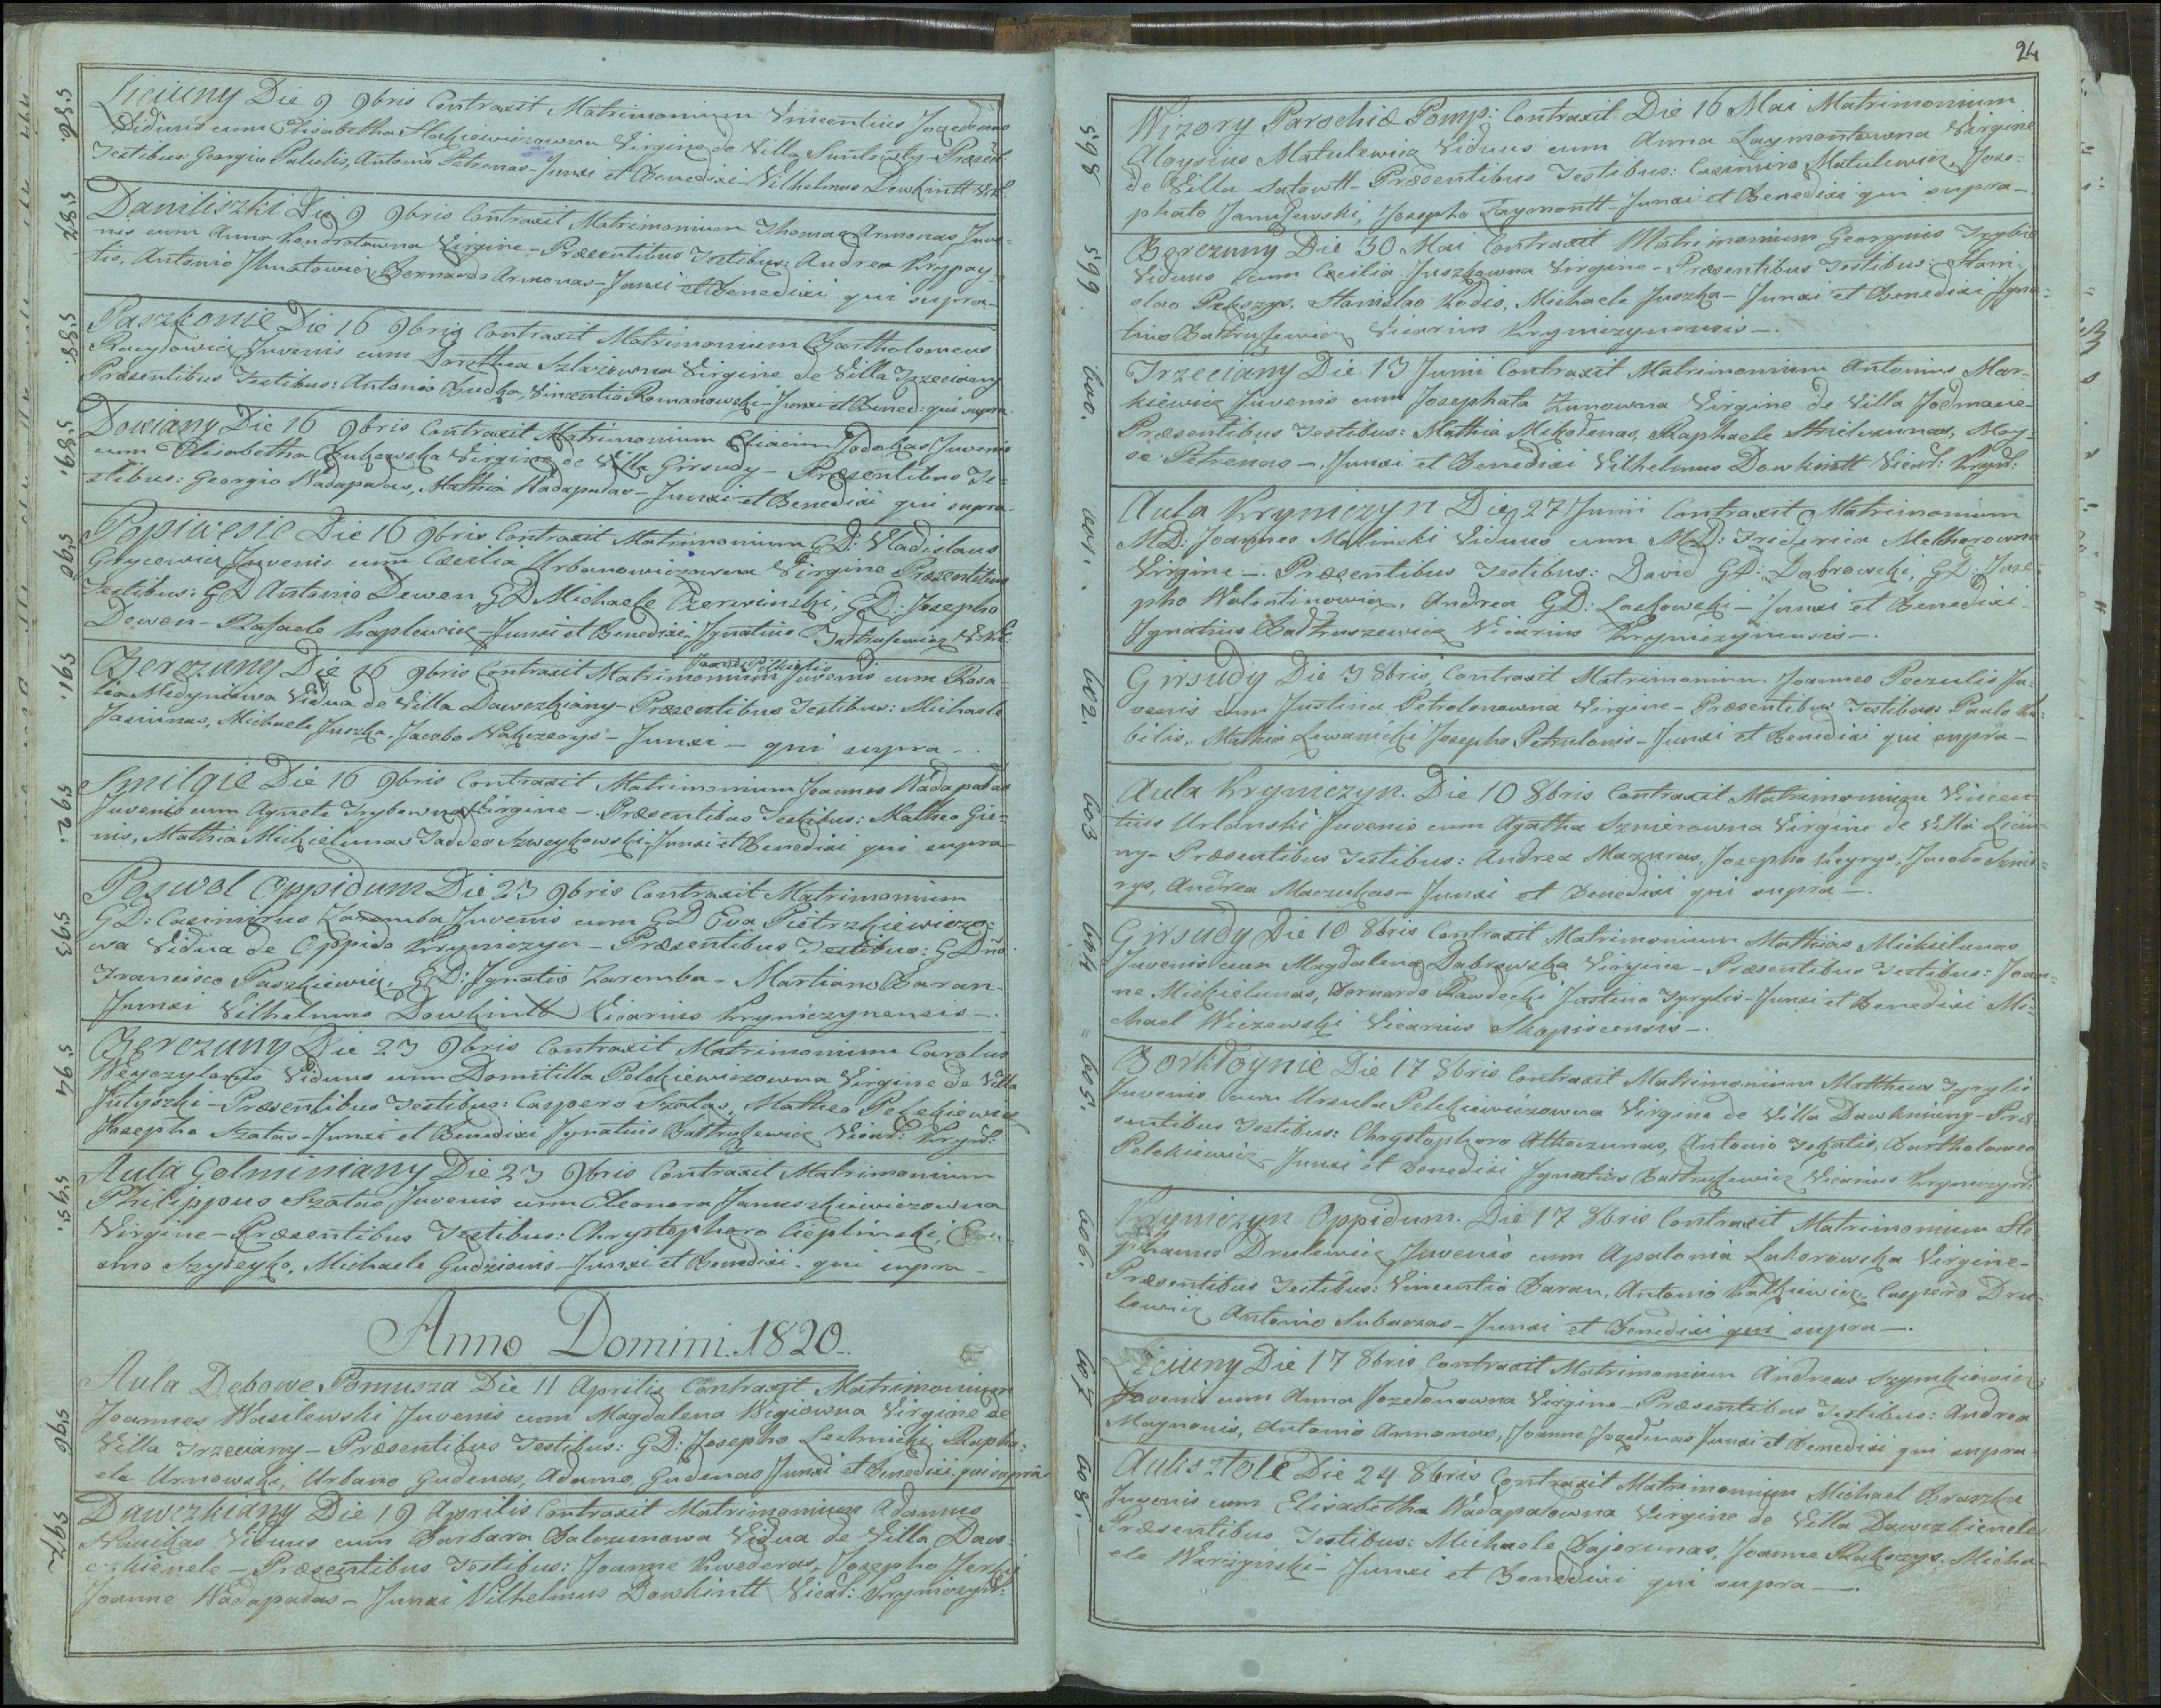 586.
Liciuny Die 9 9bris Contraxit Matrimonium Vincentius Jozedenas
Viduus cum Elisabetha Virgine de Villa Præsent:
Testibus: Georgio Patulis, Antonio Petrenas – Junxi et Benedixi Vilhelmus Dowkintt
587.
Daniliszki Die 9 9bris Contraxit Matrimonium Thomas Armonas Juve-
nis cum Anna Kondratowna Virgine – Præsentibus Testibus: Andrea Krypay-
tis, Antonio Bernardo Armonas – Junxi et Benedixi qui supra –
588.
Paszkonie Die 16 9bris Contraxit Matrimonium Bartholomeus
Juvenis cum Dorothea Virgine de Villa Trzeciany
Præsentibus Testibus: Antonio Budka, Vincentio Romanowski – Junxi et Bened: qui supra
589.
Dowiany Die 16 9bris Contraxit Matrimonium Jodakas Juvenis
cum Elisabetha Virgine de Villa Girsudy – Præsentibus Te-
stibus: Georgio Wadapadas, Mathia Wadapadas – Junxi et Benedixi qui supra.
590
Popiwesie Die 16 9bris Contraxit Matrimonium GD: Vladislaus
Grycewicz Juvenis cum Cæcilia Urbanowiczowna Virgine Præsentibus
Testibus: GD Antonio Dewen GD Michaele Czerwinski, GD: Josepho
Dewen – Rafaele Kaplewicz – Junxi et Benedixi Ignatius
591.
Berezuny Die 16 9bris Contraxit Matrimonium Juvenis cum Rosa-
lia Vidua de Villa Dawczkiany – Præsentibus Testibus: Michaele
Jasiunas, Michaele Juszka, Jacobo – Junxi – qui supra –
592.
Smilgie Die 16 9bris Contraxit Matrimonium Joannes Wadapadas
Juvenis cum Agneta Virgine – Præsentibus Testibus: Matheo Gie-
nis, Mathia Mickielunas Taddeo Szweykowski – Junxi et Benedixi qui supra –
593
Poswol Oppidum Die 23 9bris Contraxit Matrimonium
GD: Casimirus Zaremba Juvenis cum GD Eva Pietrzkiewiczo-
wa Vidua de Oppido Kryniczyn – Præsentibus Testibus: GDno
Francisco Paszkiewicz, GD: Ignatio Zaremba – Martiano Baran –
Junxi Vilhelmus Dowkintt Vicarius Kryniczynensis –.
594
Berezuny Die 23 9bris Contraxit Matrimonium Carolus
Viduus cum Domitilla Pelekiewiczowna Virgine de Villa
Julyszki – Præsentibus Testibus: Caspero Szatas, Matheo Pelekiewicz
Josepho Szatas – Junxi et Benedixi Ignatius Vicar: Kryn:
595.
Aula Golminiany Die 23 9bris Contraxit Matrimonium
Philippus Szatas Juvenis cum Eleonora Januszkiewiczowna
Virgine – Præsentibus Testibus: Chrystophoro Cieplinski,
Szydeyko, Michaele Gudzianis – Junxi et Benedixi qui supra –
Anno Domini 1820
596
Aula Dębowe Pomusza Die 11 Aprilis Contraxit Matrimonium
Joannes Wasilewski Juvenis cum Magdalena Virgine de
Villa Trzeciany – Præsentibus Testibus: GD: Josepho Lechnicki, Rapha-
ele Urnowski, Urbano Gudenas, Adamo Gudenas Junxi et Benedixi qui supra
597.
Dawczkiany Die 19 Aprilis Contraxit Matrimonium Adamus
Viduus cum Barbara Balczunowa Vidua de Villa Daw-
czkienele – Præsentibus Testibus: Joanne Kwederas, Josepho
Joanne Wadapadas – Junxi Vilhelmus Dowkintt Vicar: Kryniczyn:
24
598
Wizory Parochiæ Pomp: Contraxit Die 16 Mai Matrimonium
Aloysius Matulewicz Viduus cum Anna Laymontowna Virgine
de Villa Satowtt – Præsentibus Testibus: Casimiro Matulewicz, Jose-
phato Janiszewski, Josepho Laymontt – Junxi et Benedixi qui supra –
599.
Berezuny Die 30 Mai Contraxit Matrimonium Georgius
Viduus cum Cæcilia Juszkowna Virgine – Præsentibus Testibus: Stani-
slao Stanislao Michaele Juszka – Junxi et Benedixi Igna-
tius Vicarius Kryniczynensis –.
600.
Trzeciany Die 13 Junii Contraxit Matrimonium Antonius Mar-
kiewicz Juvenis cum Josephata Zunowna Virgine de Villa Jodmanie
Præsentibus Testibus: Mathia Mikodenas, Raphaele Moy-
se Petrenas –. Junxi et Benedixi Vilhelmus Dowkintt Vicar: Kryn:
601.
Aula Kryniczyn Die 27 Junii Contraxit Matrimonium
MD: Joannes Malinski Viduus cum MD: Frederica Melcherowna
Virgine –. Præsentibus Testibus: David GD: Dąbrowski, GD: Jose-
pho Walentinowicz, Andrea GD: Laskowski – Junxi et Benedixi
Ignatius Vicarius Kryniczynensis –.
602.
Girsudy Die 3 8bris Contraxit Matrimonium Joannes Peczulis Ju-
venis cum Justina Petrulonowna Virgine – Præsentibus Testibus: Paulo
bilis, Mathia Lewanicki Josepho Petrulonis – Junxi et Benedixi qui supra –
603
Aula Kryniczyn. Die 10 8bris Contraxit Matrimonium Vincen-
tius Urlanski Juvenis cum Agatha Szmerowna Virgine de Villa Liciu-
ny – Præsentibus Testibus: Andrea Mazuras, Josepho Kieyrys, Jacobo
rys, Andrea Maczukas – Junxi et Benedixi qui supra –.
604
Girsudy Die 10 8bris Contraxit Matrimonium Mathias Mickielunas
Juvenis cum Magdalena Dąbrowska Virgine – Præsentibus Testibus: Joan-
ne Mickielunas, Bernardo Rawdecki Justino – Junxi et Benedixi Mi-
chael Wiczewski Vicarius Skopiscensis –.
605.
Borkloynie Die 17 8bris Contraxit Matrimonium Mattheus
Juvenis cum Ursula Pelekiewiczowna Virgine de Villa Dawkniuny – Præ-
sentibus Testibus: Chrystophoro Antonio Bartholomeo
Pelekiewicz – Junxi et Benedixi Ignatius Vicarius Kryniczyn:
606.
Kryniczyn Oppidum. Die 17 8bris Contraxit Matrimonium Ste-
phanus Drulewicz Juvenis cum Apolonia Lakorowska Virgine –
Præsentibus Testibus: Vincentio Baran, Antonio Caspero Dru-
lewicz Antonio Subaczas – Junxi et Benedixi qui supra –.
607
Liciuny Die 17 8bris Contraxit Matrimonium Andreas Szymkiewicz
Juvenis cum Anna Jozedonowna Virgine – Præsentibus Testibus: Andrea
Maynonis, Antonio Armonas, Joanne Jozedenas Junxi et Benedixi qui supra
608.
Auksztole Die 24 8bris Contraxit Matrimonium Michael Braszka
Juvenis cum Elisabetha Wadapalowna Virgine de Villa Dawczkienele
Præsentibus Testibus: Michaele Bajorunas, Joanne Micha-
ele – Junxi et Benedixi qui supra –.